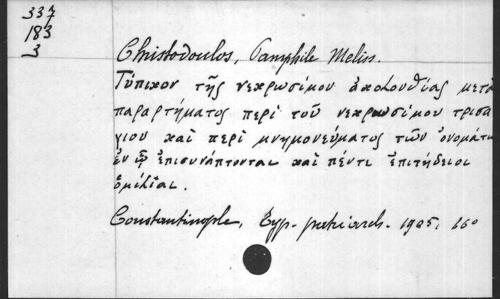 337
183
3
Christodoulos, Pamphile Meliss.
Τύπικον τῆς νεκρωσίμου ἀκολουθίας μετα
παραρτήματος περὶ τοῦ νεκρωσίμου τρισα
γιου καὶ περὶ μνημονεύματος τῶν ὀνομάτω
ἐν ᾧ ἐπισυνάπτονται καὶ πέντε ἐπιτήδειοι
ὁμιλίαι.
Constantinople, Typ. patriarch. 1905. 16°